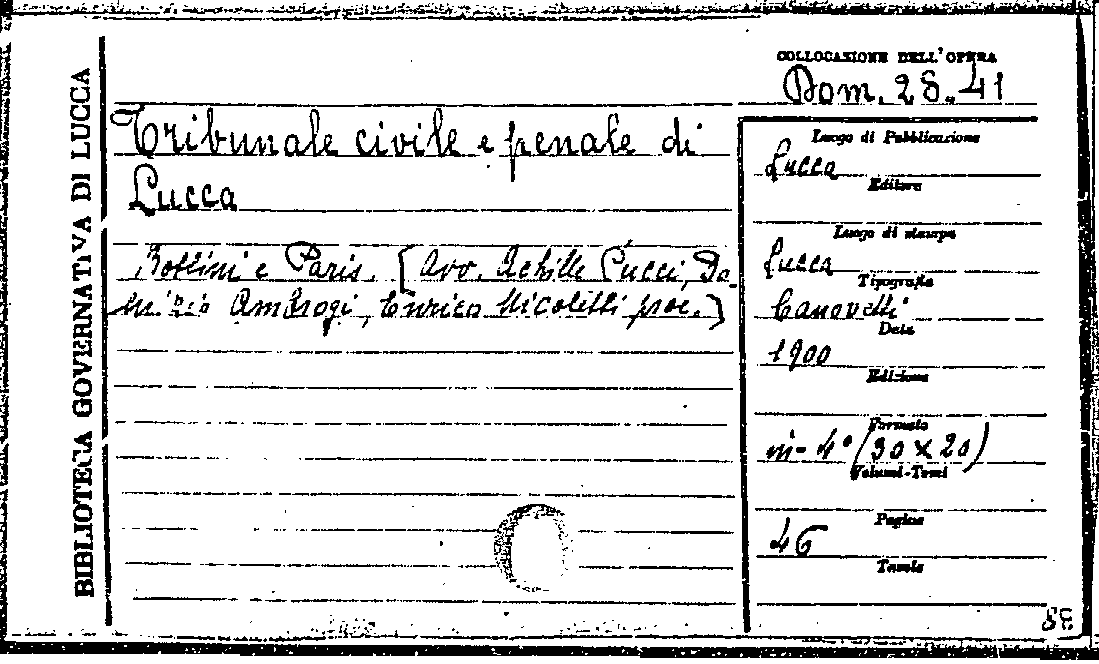 BIBLIOTECA GOVERNATIVA DI LUCCA
COLLOCAZIONE DELL'OPERA
Dom. 28.41
Tribunale civile e penale di
Lucca
Bottini e Paris. [Avv. Achille Pucci, Do-
Ambrogi, Enrico Nicoletti proc.]
Luogo di Pubblicazione
Lucca
Editore
Luogo di stampa
Lucca
Tipografia
Canovetti
Data
1900
Edizione
Formato
in-4° (30 x 20)
Volumi-Tomi
Pagine
46
Tavole